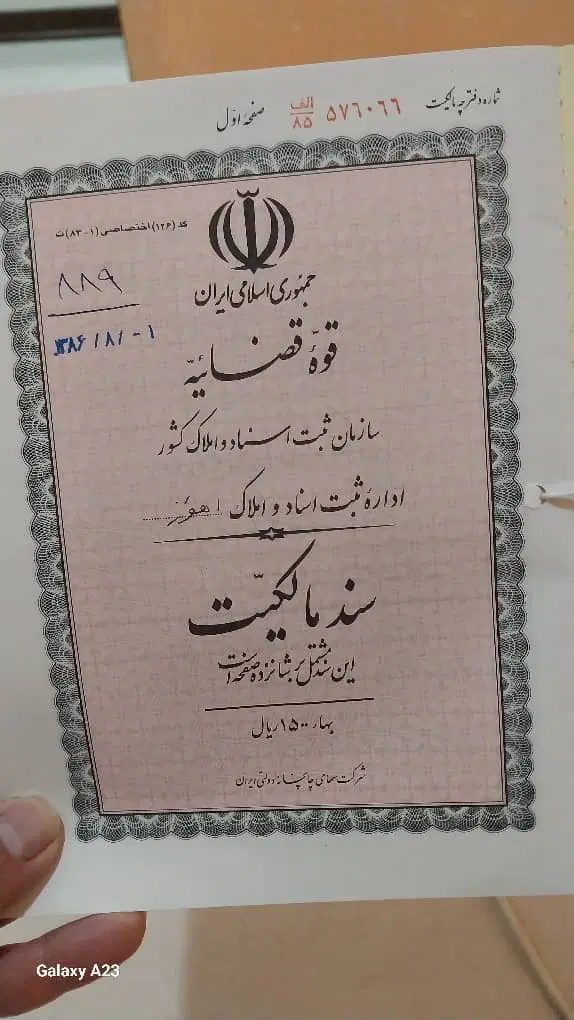 شماره دفترچه مالکیت ۵۷۶۰۶۶ الف/۸۵ صفحهٔ اوّل
کد (۱۲۶) اختصاصی (۱-۸۳) ت
۸۸۹
۱۳۸۶/۸/-۱
جمهوری اسلامی ایران
قوّهٔ قضائیّه
سازمان ثبت اسناد و املاک کشور
ادارهٔ ثبت اسناد و املاک اهواز
سند مالکیّت
این سند مشتمل بر شانزده صفحه است
بهاء ۱۵۰۰ ریال
شرکت سهامی چاپخانه دولتی ایران
Galaxy A23